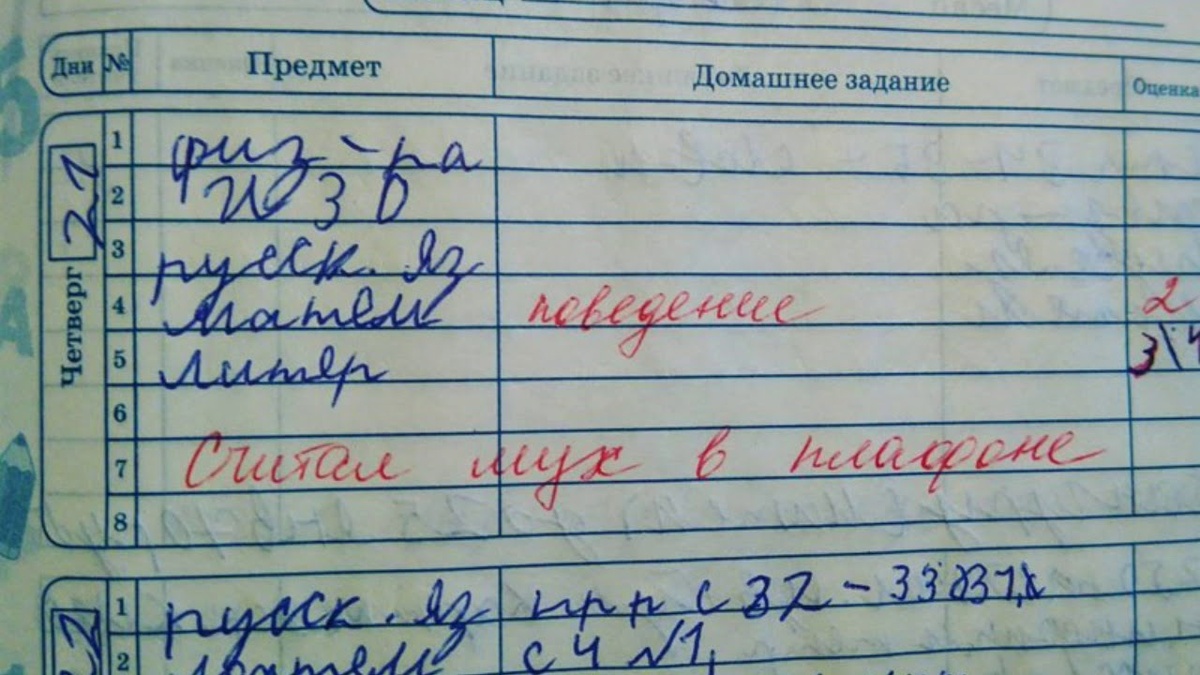 Дни № Предмет Домашнее задание Оценка
Четверг 21
1 физ-ра
2 ИЗО
3 русск. яз
4 матем поведение 2
5 литер 3\4
6
7 Считал мух в плафоне
8
22
1 русск. яз с 32 - 33
2 матем с 4 №1,